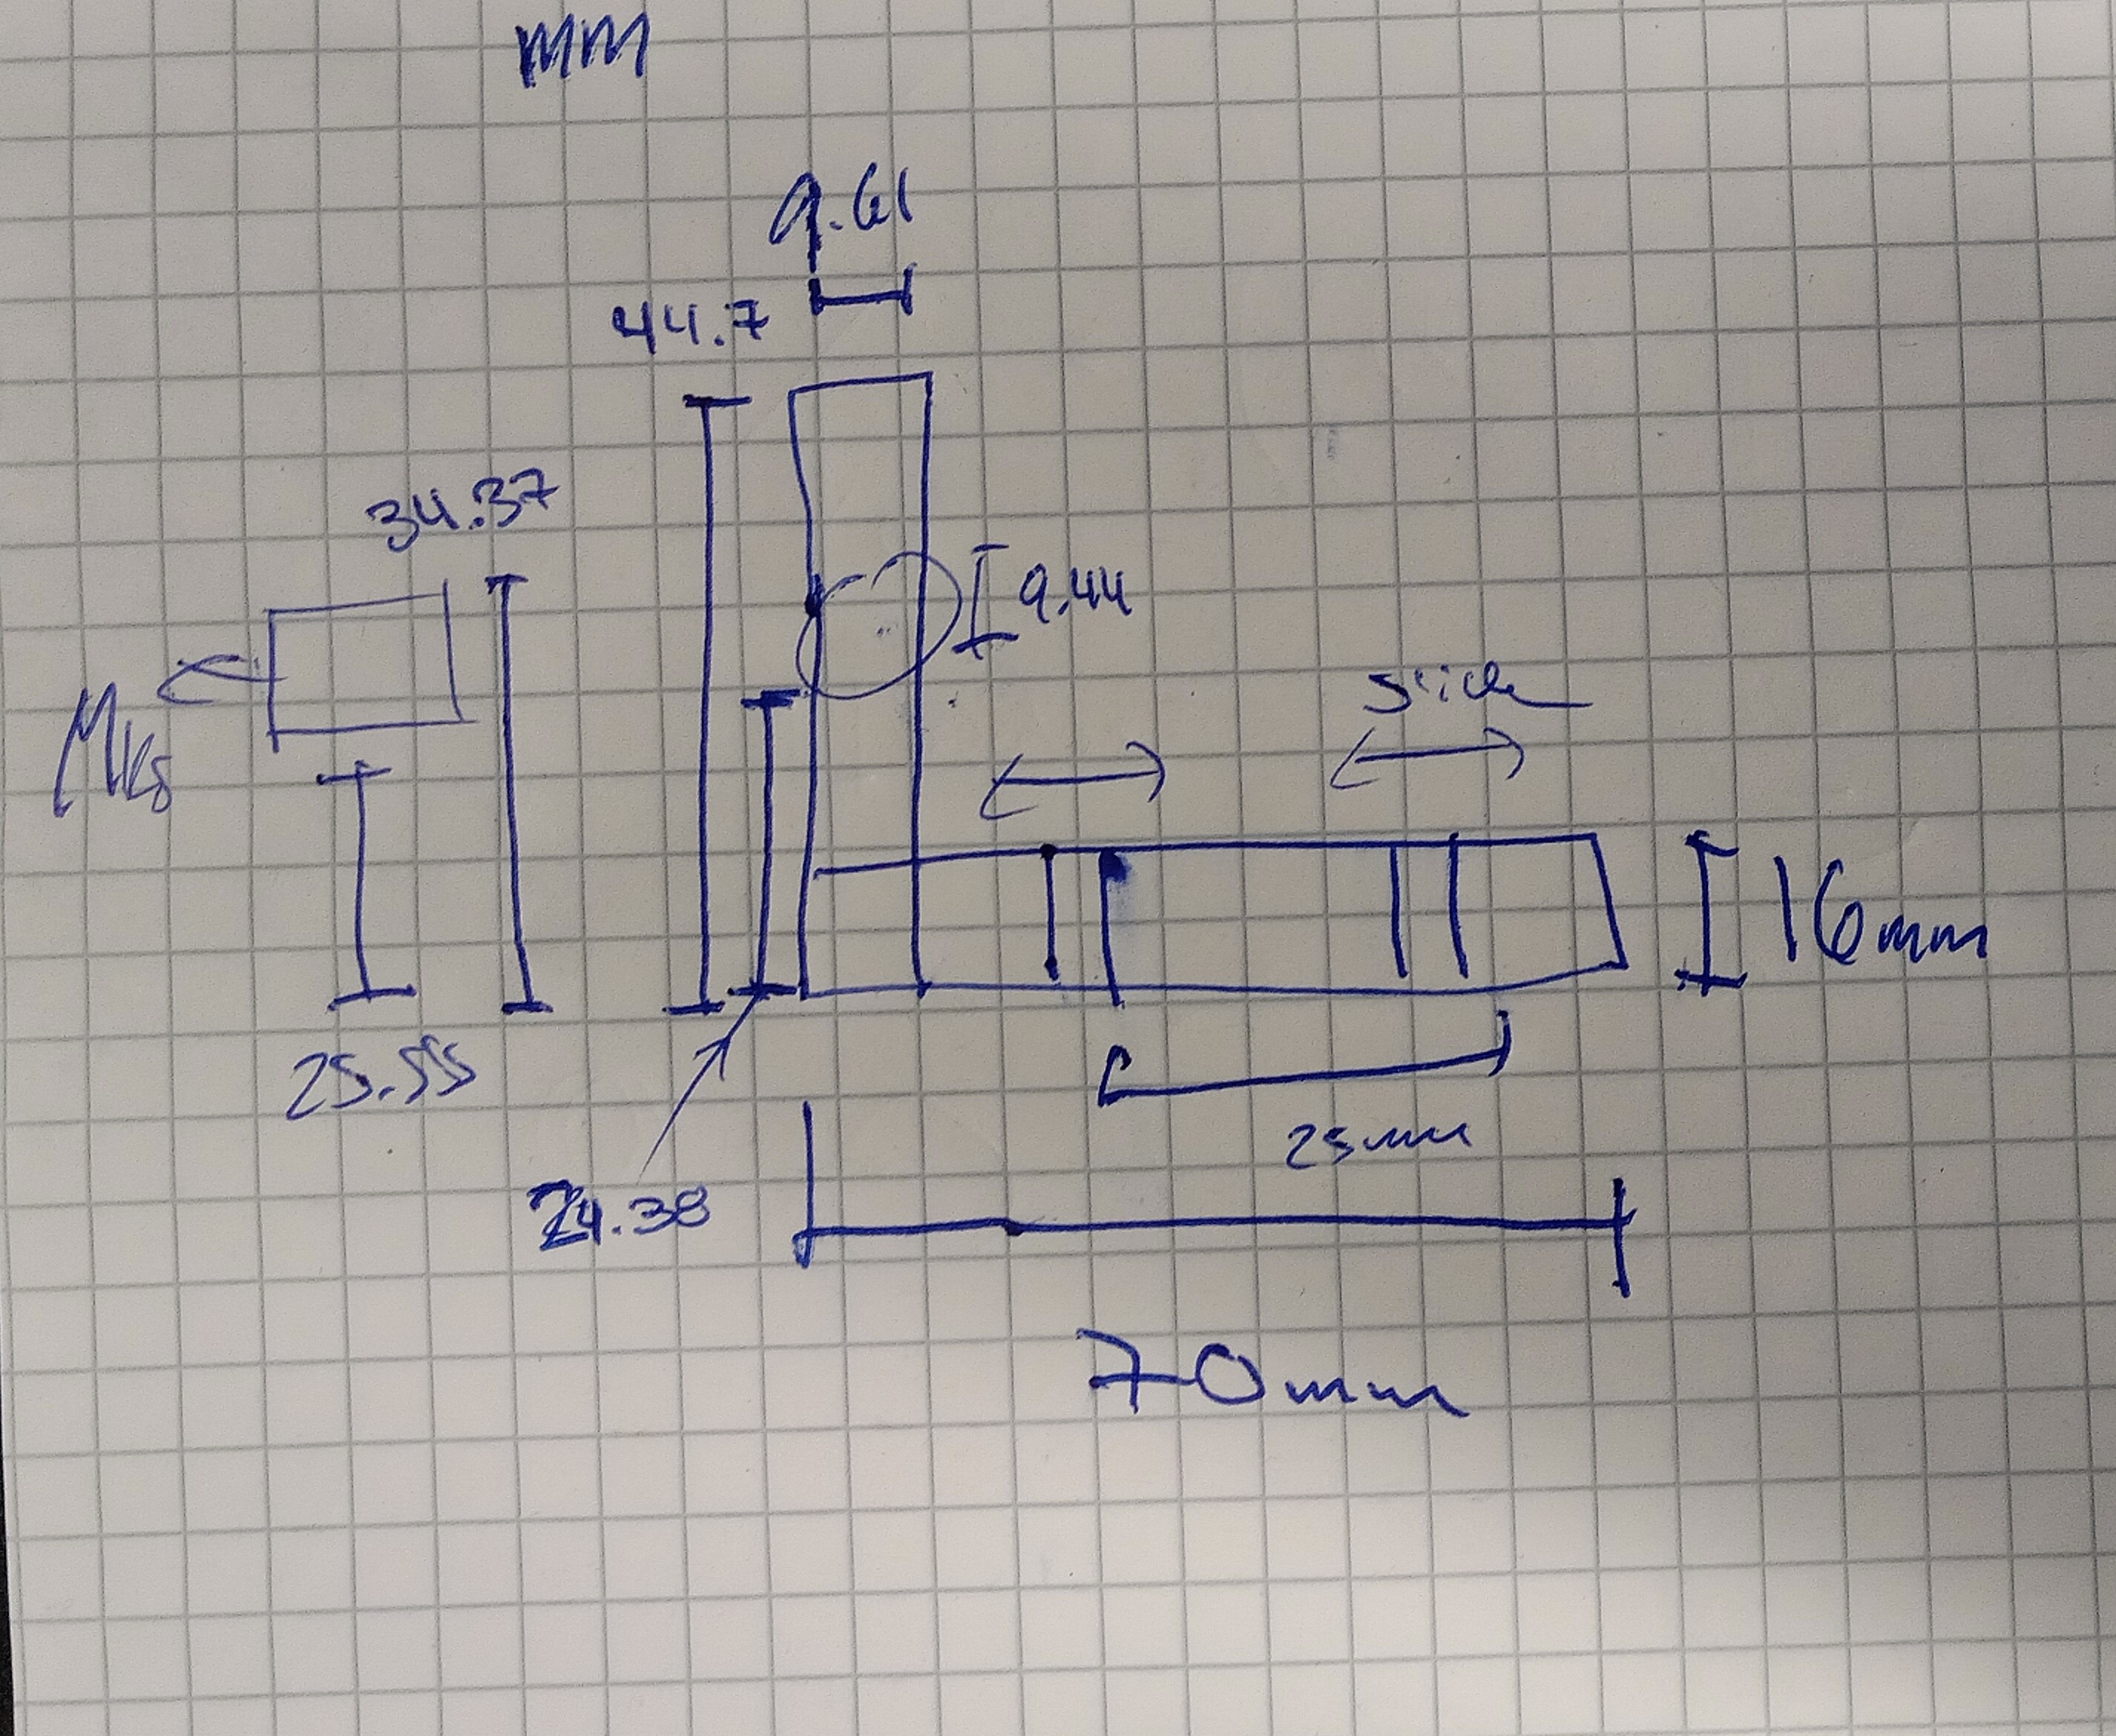 mm
9.61
44.7
34.37
9.44
MK8
16mm
25.55
25mm
24.38
70mm